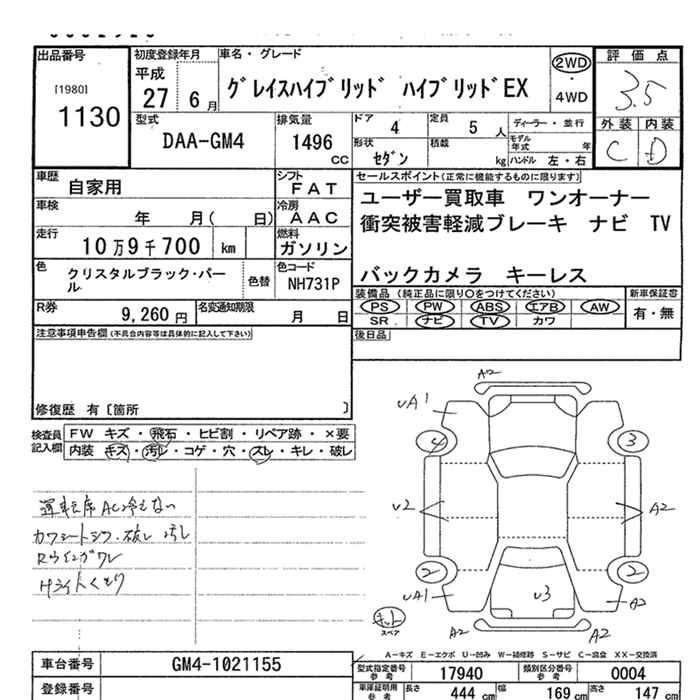 出品番号
[1980]
1130
初度登録年月
平成
27 6 月
車名・グレード
グレイスハイブリッド ハイブリッドEX
2WD
・
4WD
評価点
3.5
外装 内装
C D
型式
DAA-GM4
排気量
1496
CC
ドア 4
定員 5 人
ディーラー・並行
モデル年式 年
形状 セダン
積載 kg
ハンドル 左・右
車歴 自家用
シフト FAT
車検 年 月( 日)
冷房 AAC
走行 10万9千700 km
燃料 ガソリン
色 クリスタルブラック・パール
色替
色コード NH731P
R券 9,260 円
名変通知期限 月 日
セールスポイント(正常に機能するものに限ります)
ユーザー買取車 ワンオーナー
衝突被害軽減ブレーキ ナビ TV
バックカメラ キーレス
装備品 (純正品に限り〇をつけてください)
新車保証書
PS PW ABS エアB AW
有・無
SR ナビ TV カワ
後日品
注意事項申告欄(不具合内容等は具体的に記入して下さい)
修復歴 有〔箇所 〕
検査員記入欄
FW キズ・飛石・ヒビ割・リペア跡・×要
内装 キズ・汚レ・コゲ・穴・スレ・キレ・破レ
運転席AC冷えない
カワシートシワ・破レ 汚レ
Rウィングワレ
Hライトくもり
A2
UA1
4
3
U2
A2
2
2
UA1
U3
A2
A2
A2
キット
スペア
A-キズ E-エクボ U-凹み W-補修跡 S-サビ C-腐食 XX-交換済
車台番号 GM4-1021155
型式指定番号 参考 17940
類別区分番号 参考 0004
登録番号
車庫証明用 参考
長さ 444 cm
幅 169 cm
高さ 147 cm